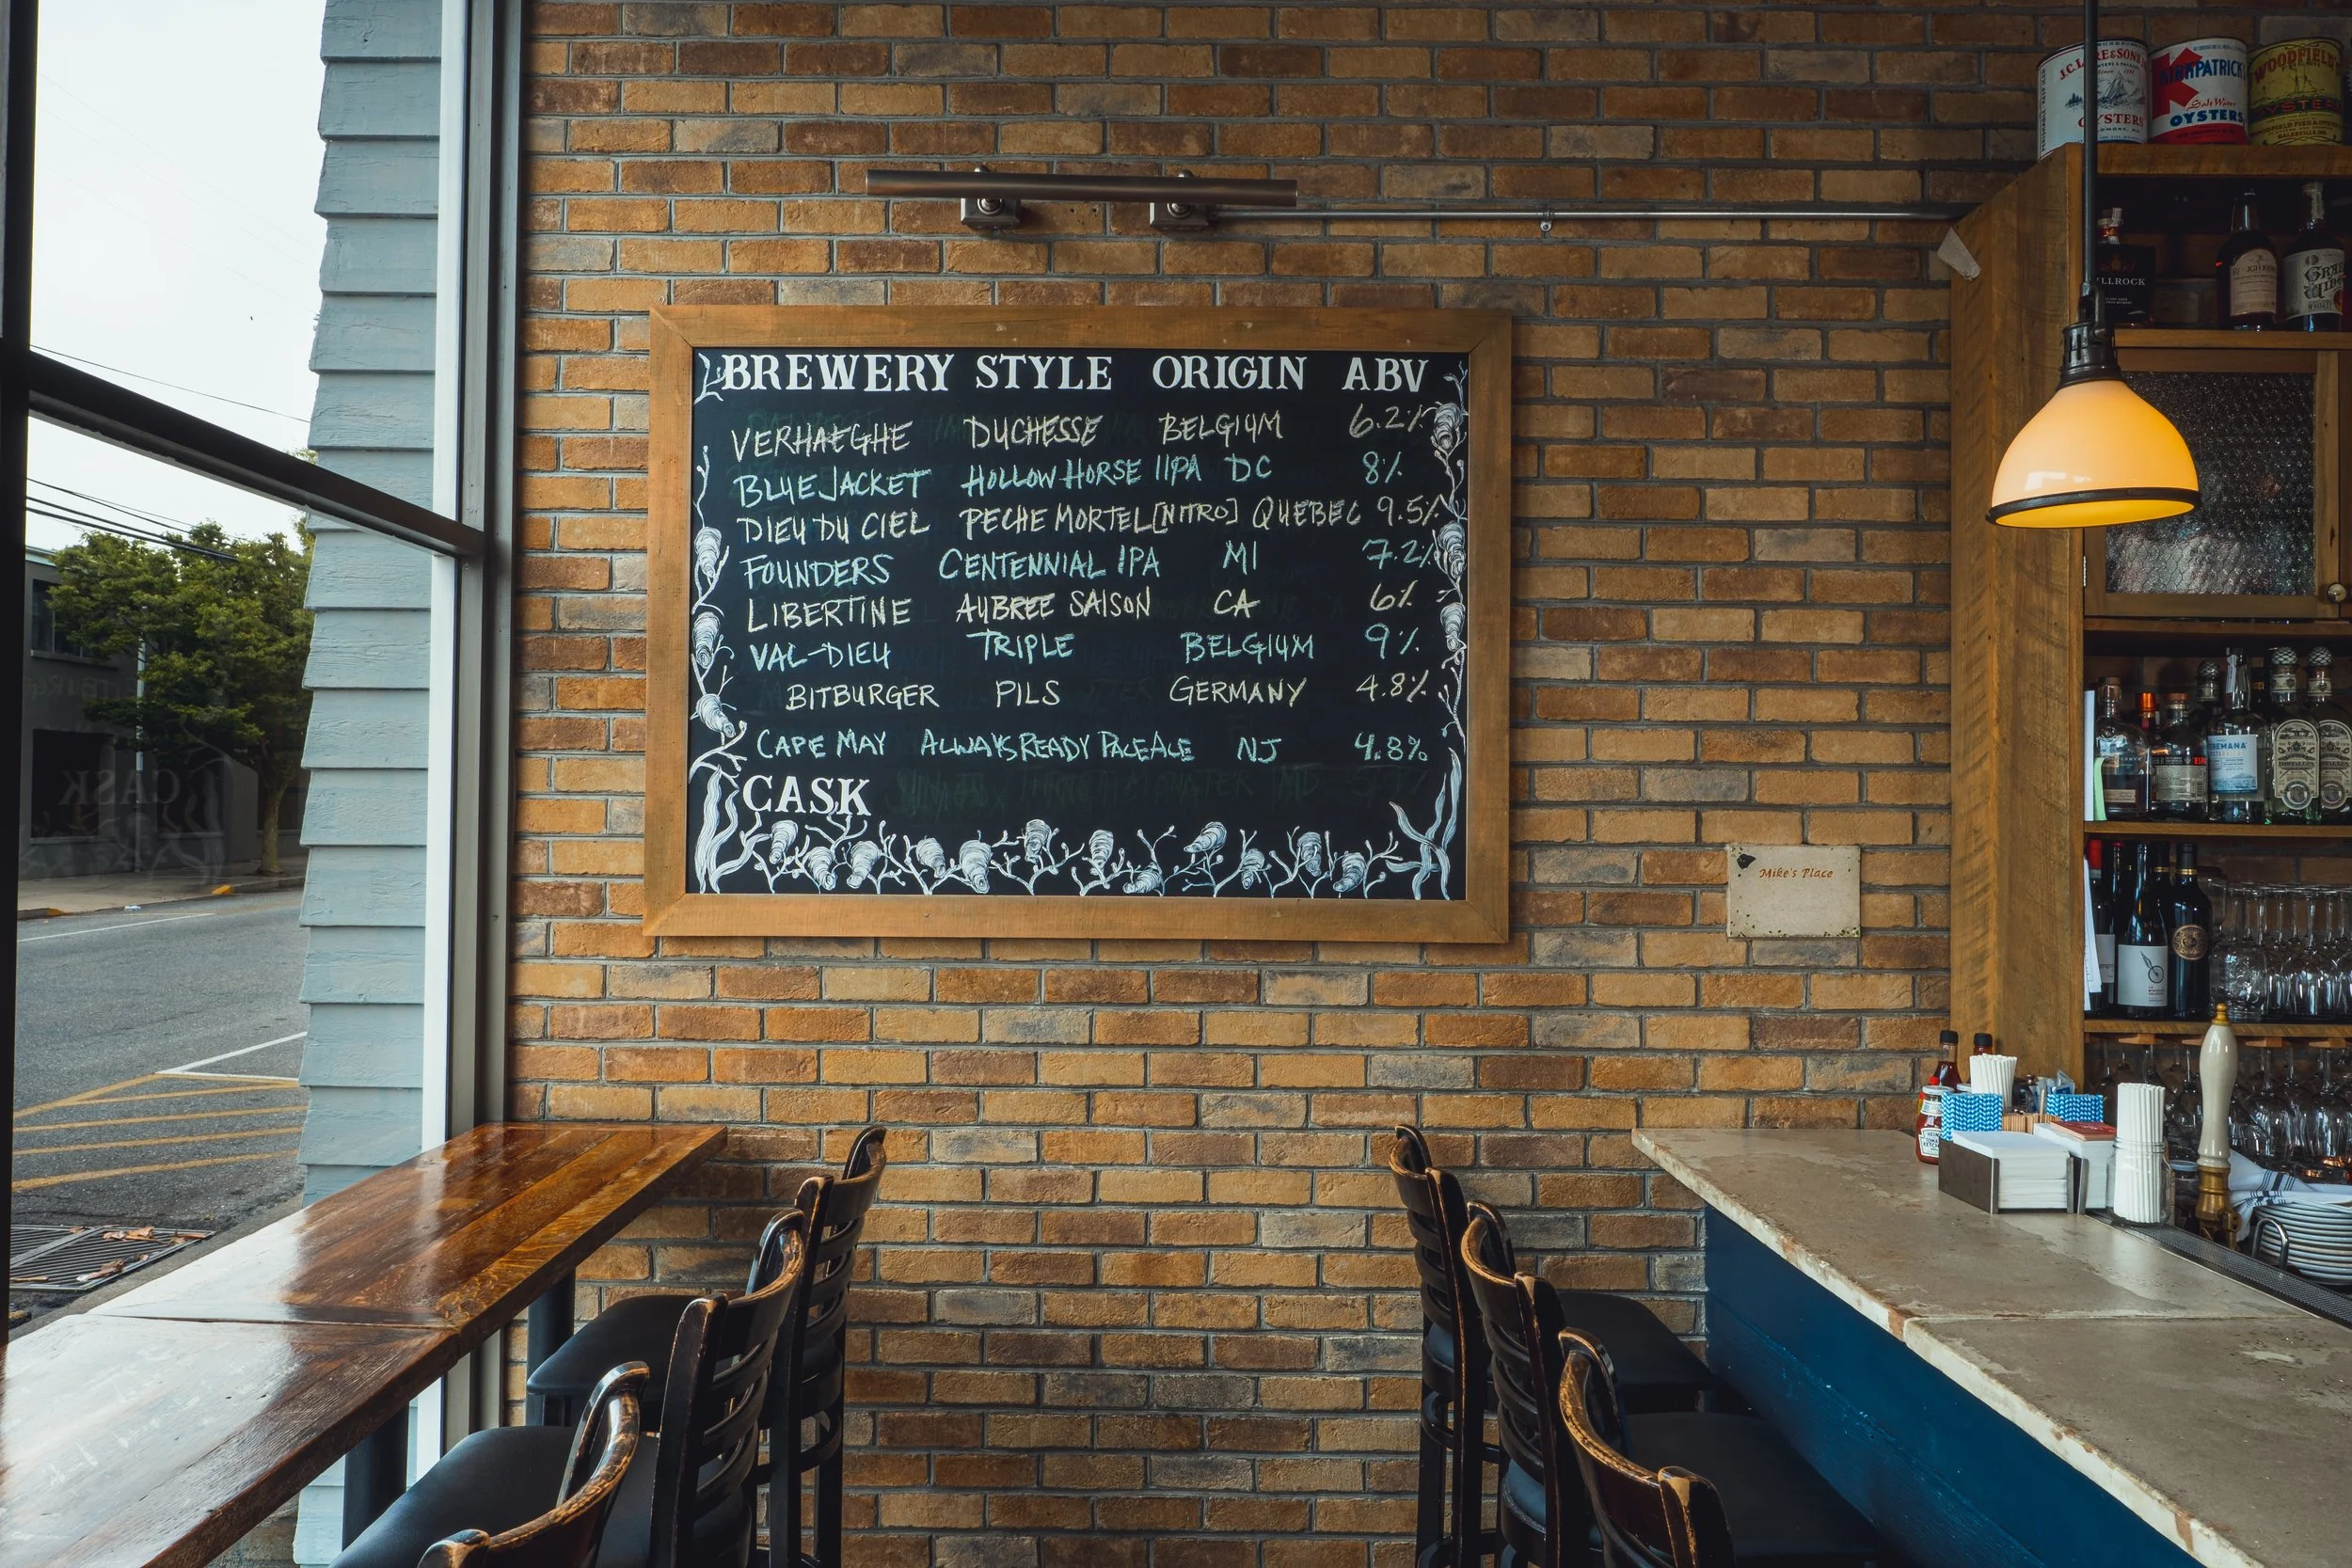 BREWERY STYLE ORIGIN ABV
VERHAEGHE DUCHESSE BELGIUM 6.2%
BLUEJACKET HOLLOW HORSE IIPA DC 8%
DIEU DU CIEL PECHE MORTEL [NITRO] QUEBEC 9.5%
FOUNDERS CENTENNIAL IPA MI 7.2%
LIBERTINE AUBREE SAISON CA 6%
VAL-DIEU TRIPLE BELGIUM 9%
BITBURGER PILS GERMANY 4.8%
CAPE MAY ALWAYS READY PALE ALE NJ 4.8%
CASK
Mike's Place
OYSTERS
KIRKPATRICK'S
Salt Water
OYSTERS
WOODFIELD'S
OYSTERS
CASK